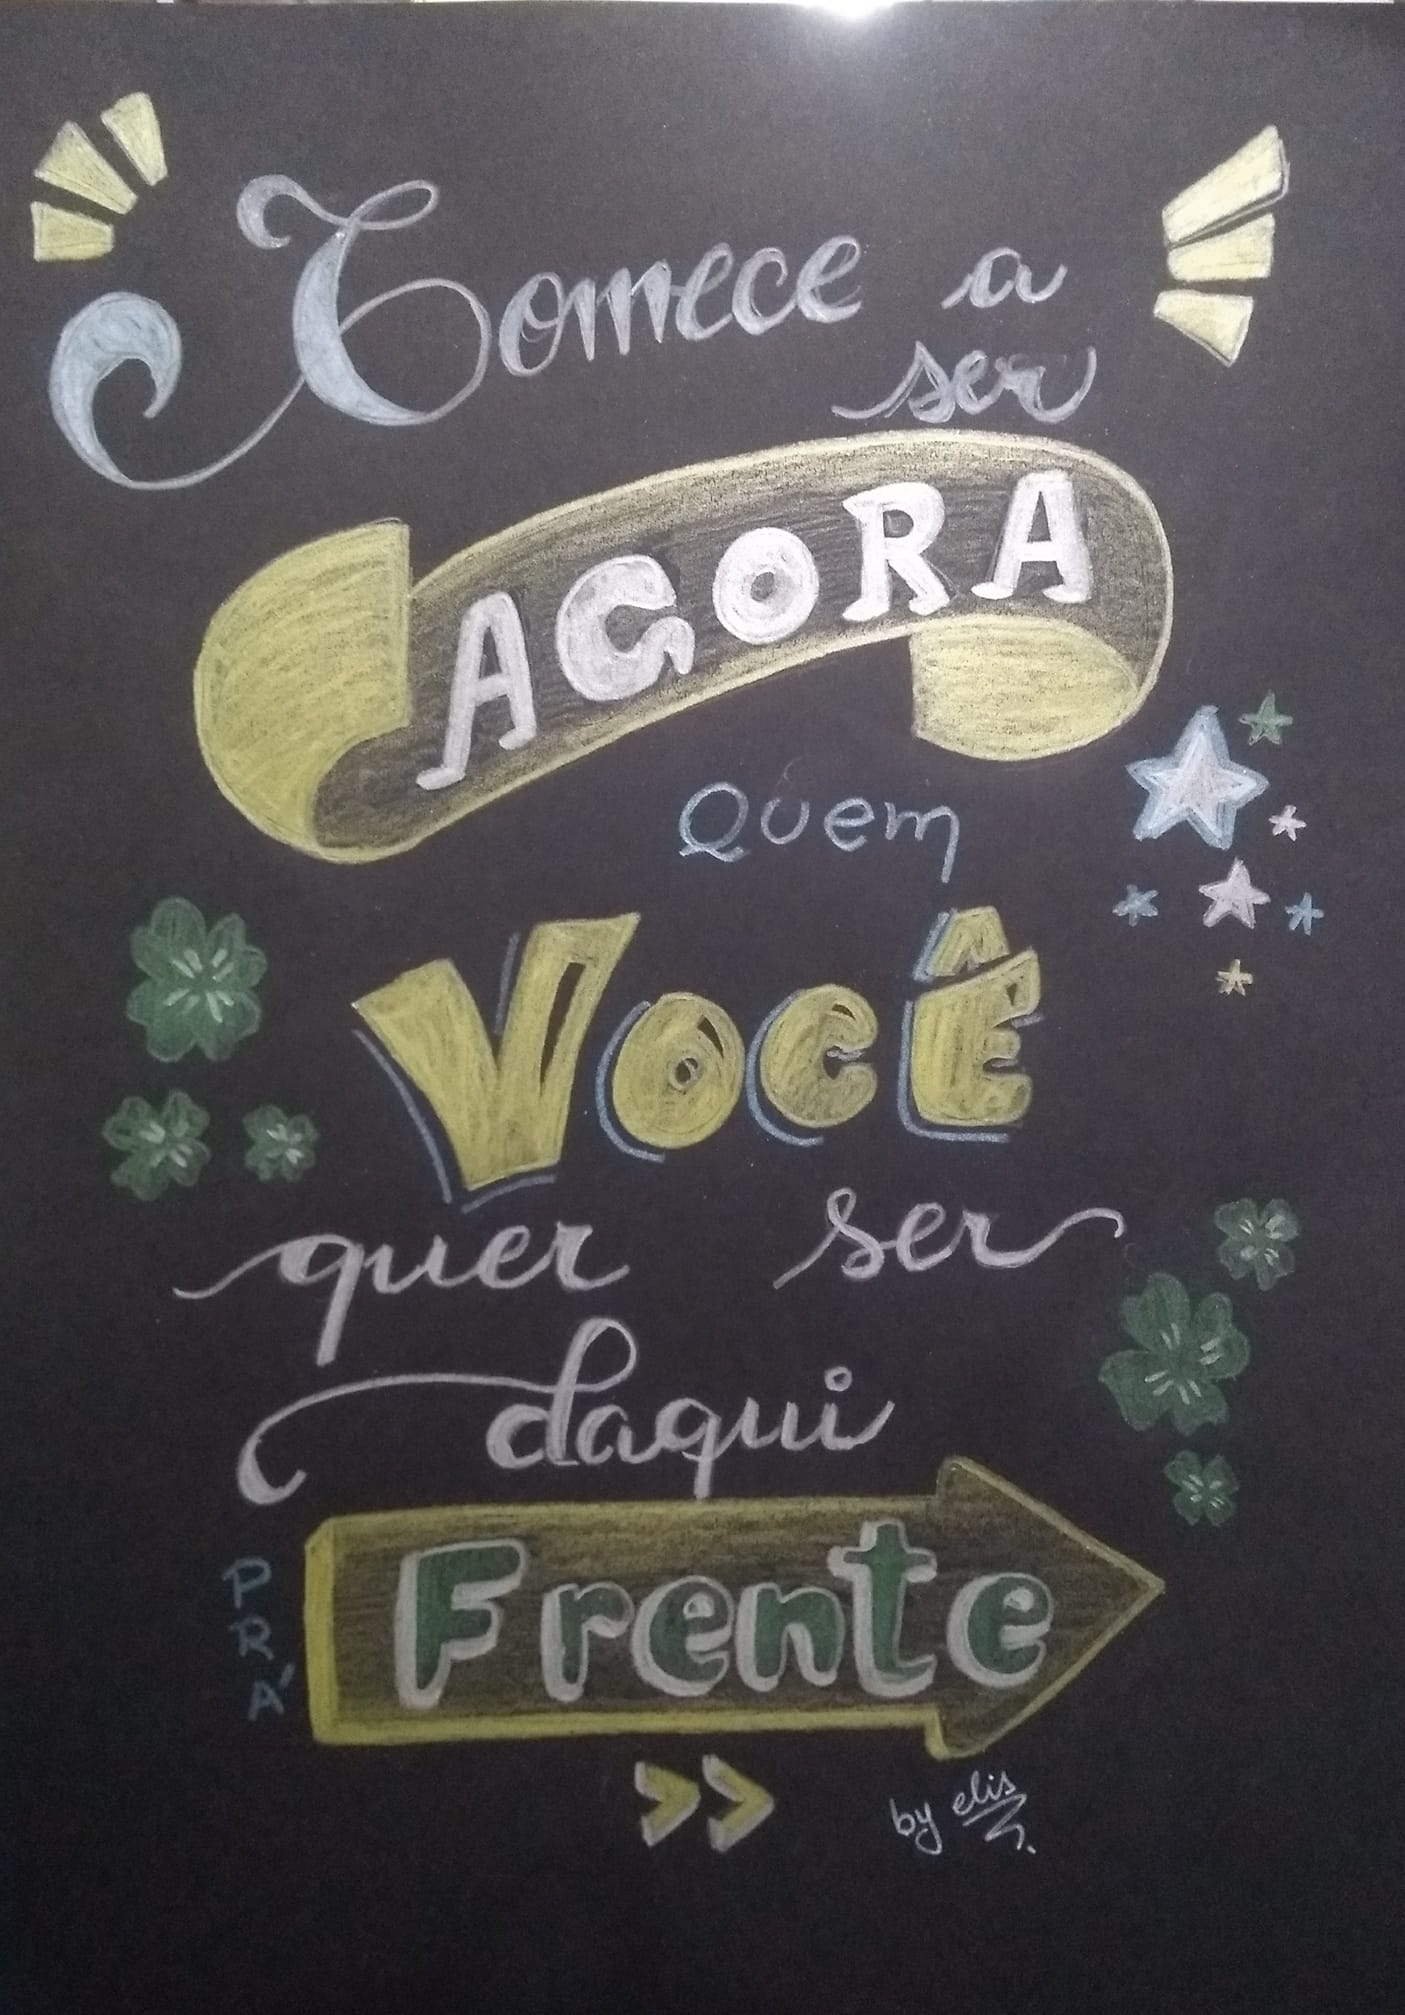 Comece a
ser
AGORA
Quem
VOCÊ
quer ser
daqui
PRÁ
Frente
>>
by elis